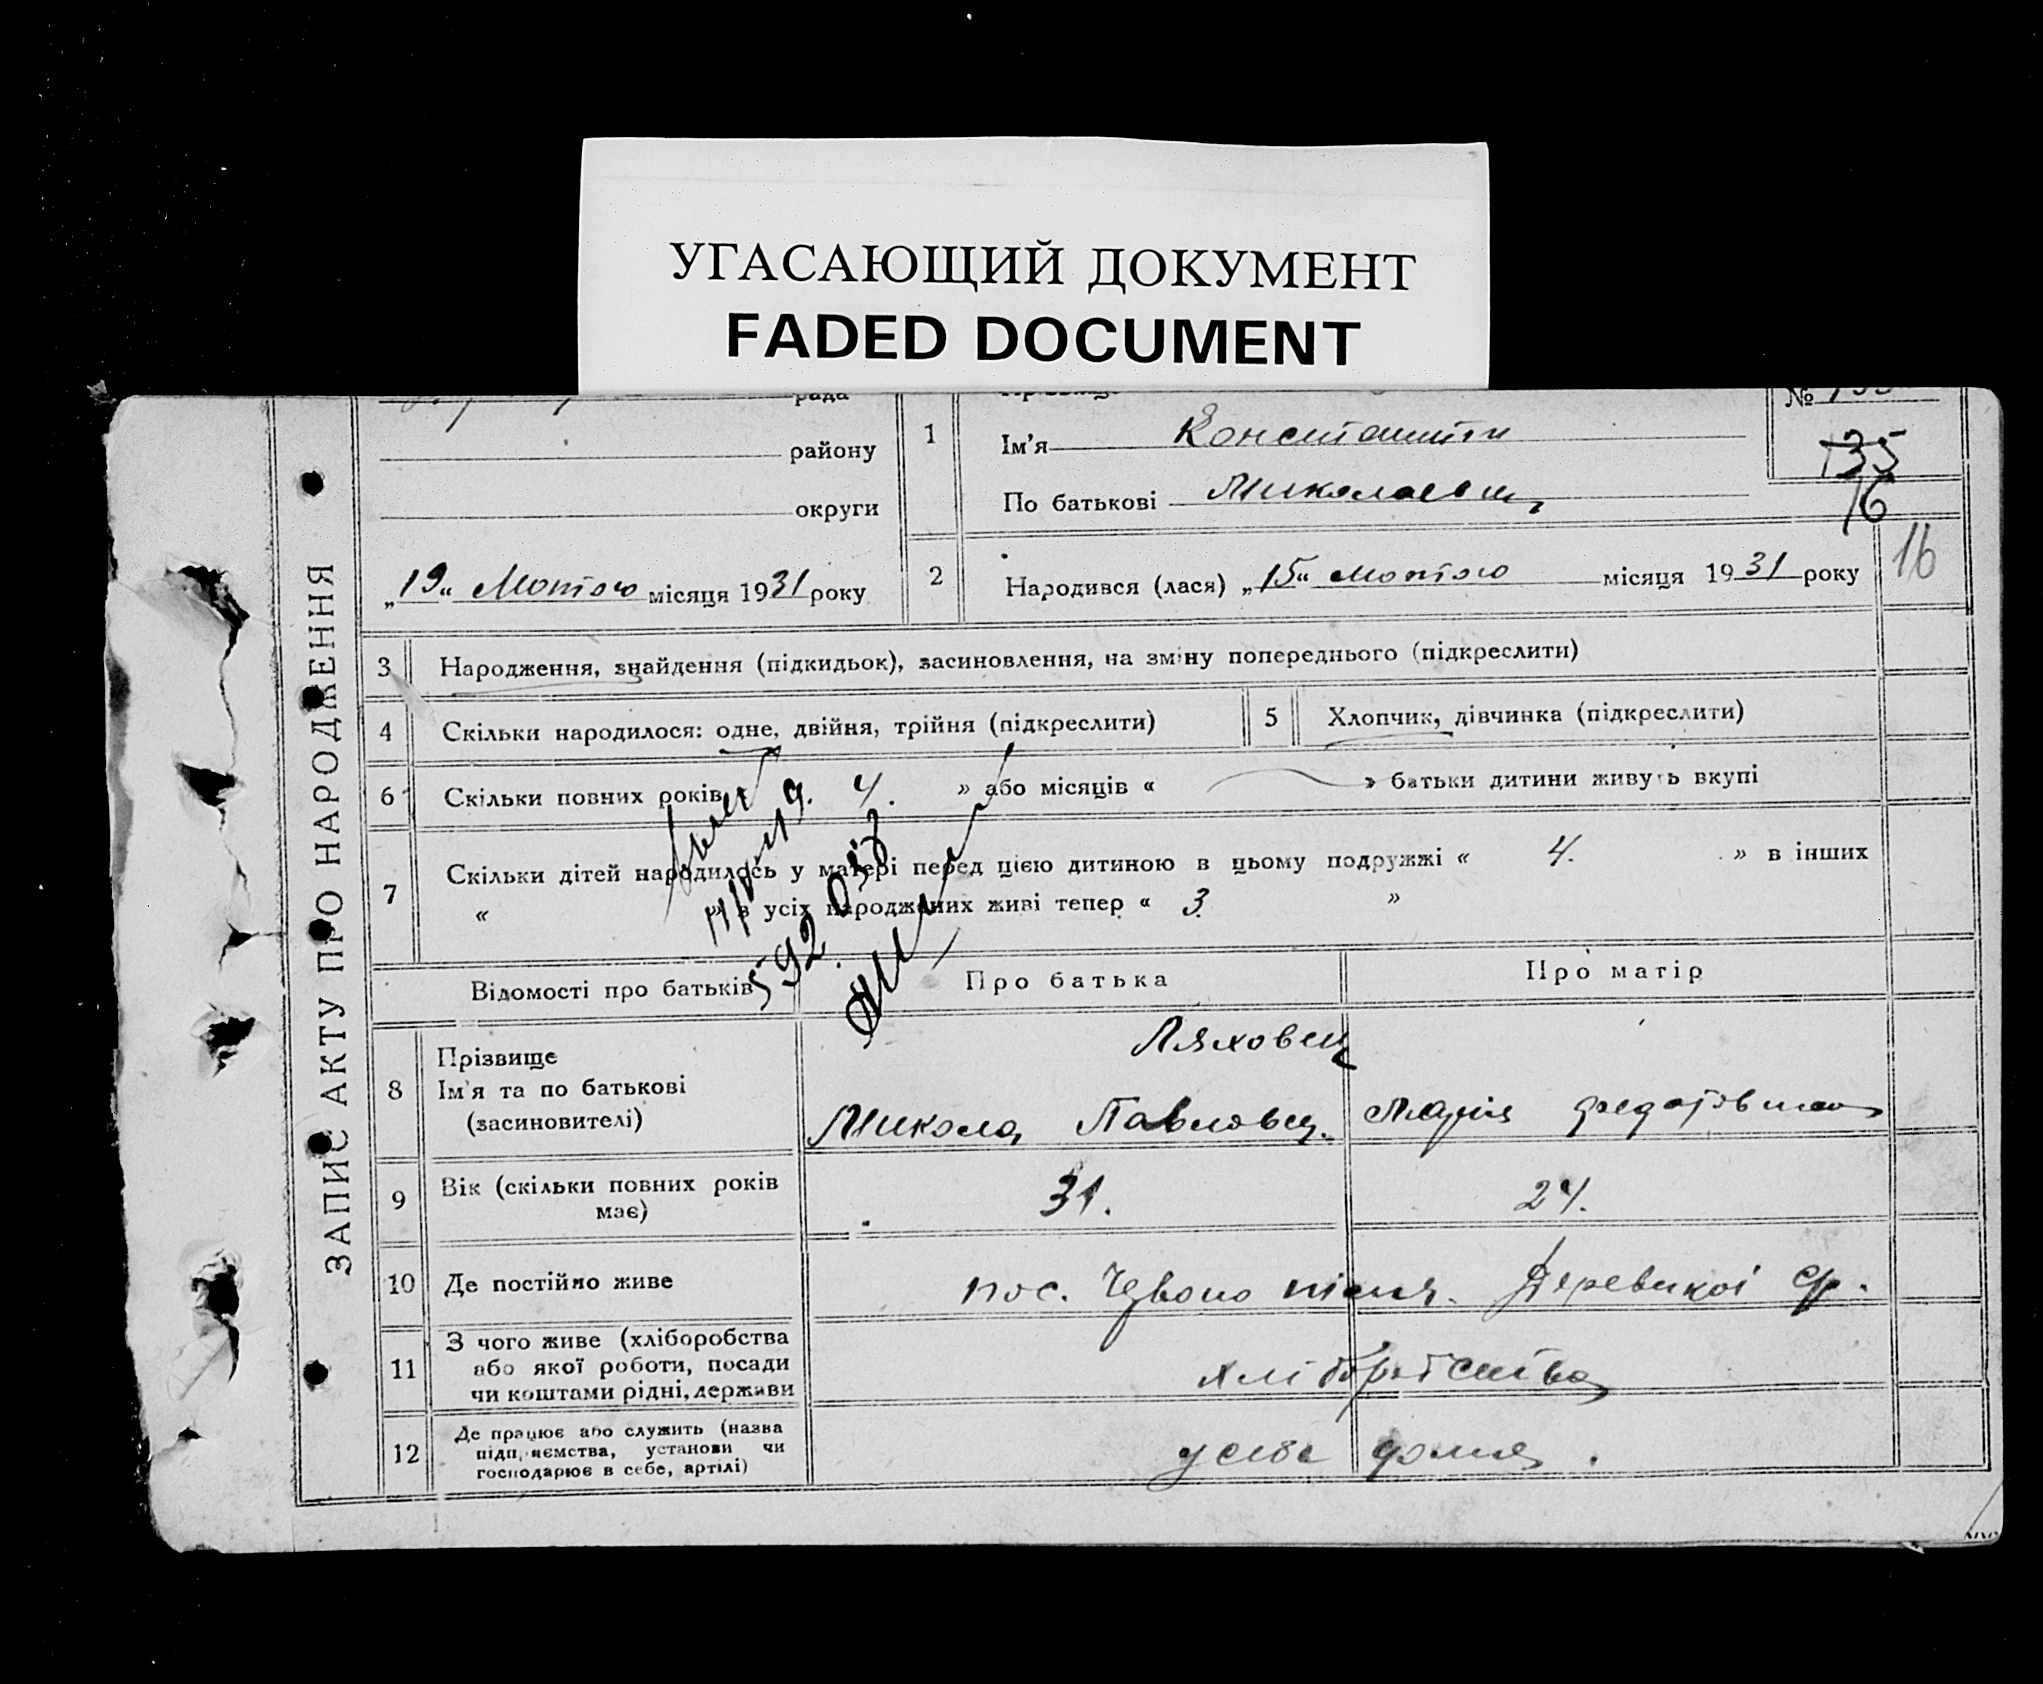 УГАСАЮЩИЙ ДОКУМЕНТ
FADED DOCUMENT
ЗАПИС АКТУ ПРО НАРОДЖЕННЯ
рада
району
округи
„19“ Лютого місяця 1931 року
№
135
16
16
1
Ім'я Константин
По батькові Миколаевич
2
Народився (лася) „15“ лютого місяця 1931 року
3 Народження, знайдення (підкидьок), засиновлення, на зміну попереднього (підкреслити)
4 Скільки народилося: одне, двійня, трійня (підкреслити)
5 Хлопчик, дівчинка (підкреслити)
6 Скільки повних років 4. » або місяців « » батьки дитини живуть вкупі
7 Скільки дітей народилось у матері перед цією дитиною в цьому подружжі « 4. » в інших
« » з усіх народжених живі тепер « 3 »
592
Відомості про батьків Про батька Про матір
8 Прізвище Ляховец
Ім'я та по батькові
(засиновителі) Микола Павловец. Марія Федотовна
9 Вік (скільки повних років має) 31. 24.
10 Де постійно живе пос. Червоно пілля. Деревицкоі с/р.
11 З чого живе (хліборобства
або якої роботи, посади
чи коштами рідні, держави хліборобства
12 Де працює або служить (назва
підприємства, установи чи
господарює в себе, артілі) у себе дома.